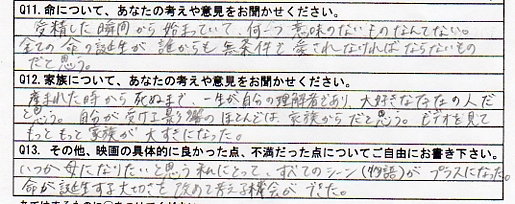 Q11. 命について、あなたの考えや意見をお聞かせください。
受精した瞬間から始まっていて、何一つ意味のないものなんてない。
全ての命の誕生が誰からも無条件で愛されなければならないもの
だと思う。
Q12. 家族について、あなたの考えや意見をお聞かせください。
産まれた時から死ぬまで、一生が自分の理解者であり、大好きな存在の人だ
と思う。自分が受ける影響のほとんどは、家族からだと思う。ビデオを見て
もっともっと家族が大すきになった。
Q13. その他、映画の具体的に良かった点、不満だった点についてご自由にお書き下さい。
いつか母になりたいと思う私にとって、すべてのシーン(物語)がプラスになった。
命が誕生する大切さを改めて考える機会ができた。